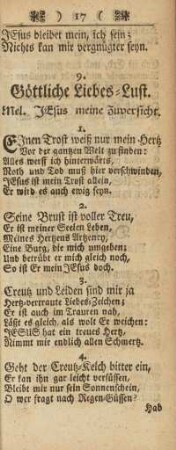 ) 17 (
JEsus bleibet mein, ich sein;
Nichts kan mir vergnügter seyn.
9.
Göttliche Liebes-Lust.
Mel. JEsus meine Zuversicht.
1.
EInen Trost weiß nur mein Hertz
Vor der gantzen Welt zu finden:
Alles werff ich hinterwärts,
Noth und Tod muß hier verschwinden,
JEsus ist mein Trost allein,
Er wird es auch ewig seyn.
2.
Seine Brust ist voller Treu,
Er ist meiner Seelen Leben,
Meines Hertzens Artzeney,
Eine Burg, die mich umgeben;
Und betrübt er mich gleich noch,
So ist Er mein JEsus doch.
3.
Creutz und Leiden sind mir ja
Hertz-vertraute Liebes-Zeichen;
Er ist auch im Trauren nah,
Läßt es gleich, als wolt Er weichen:
JESUS hat ein treues Hertz,
Nimmt mir endlich allen Schmertz.
4.
Geht der Creutz-Kelch bitter ein,
Er kan ihn gar leicht versüssen,
Bleibt mir nur sein Sonnenschein,
O wer fragt nach Regen-Güssen?
Hab